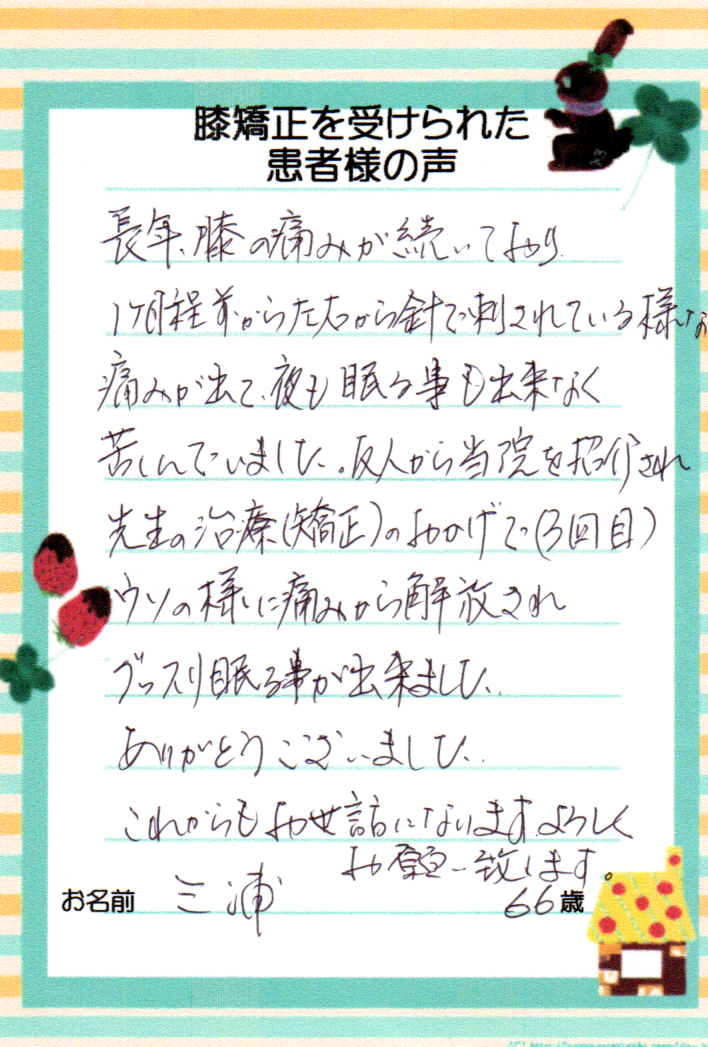 膝矯正を受けられた
患者様の声
長年、膝の痛みが続いており
1ヶ月程前から左右から針で刺されている様な
痛みが出て、夜も眠る事も出来なく
苦しんでいました。友人から当院を招介され
先生の治療(矯正)のおかげで(3回目)
ウソの様に痛みから解放され
グッスリ眠る事が出来ました。
ありがとうございました。
これからもお世話になります。よろしく
お願い致します。
お名前 三浦 66歳